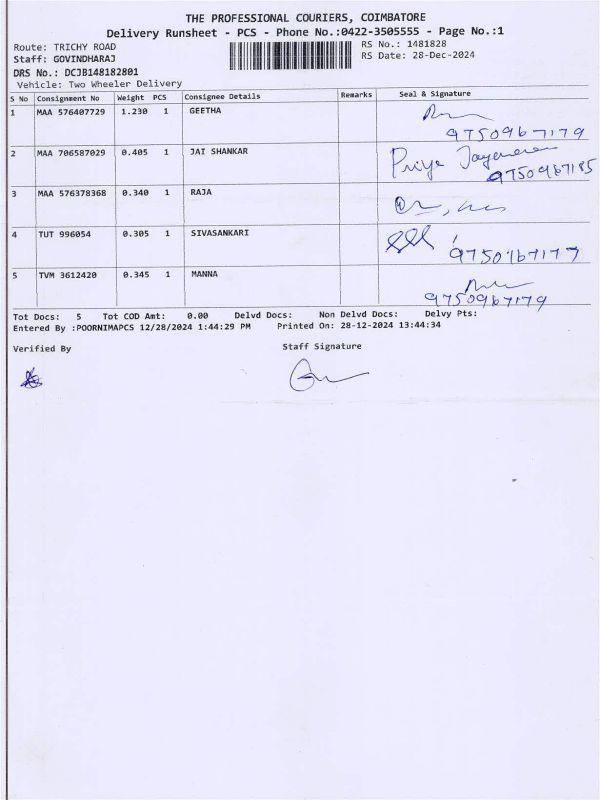 THE PROFESSIONAL COURIERS, COIMBATORE
Delivery Runsheet - PCS - Phone No.:0422-3505555 - Page No.:1
Route: TRICHY ROAD
RS No.: 1481828
Staff: GOVINDHARAJ
RS Date: 28-Dec-2024
DRS No.: DCJB148182801
Vehicle: Two Wheeler Delivery
S No Consignment No Weight PCS Consignee Details Remarks Seal & Signature
1 MAA 576407729 1.230 1 GEETHA
9750967179
2 MAA 706587029 0.405 1 JAI SHANKAR Priya
9750967185
3 MAA 576378368 0.340 1 RAJA
4 TUT 996054 0.305 1 SIVASANKARI
9750967177
5 TVM 3612420 0.345 1 MANNA
9750967179
Tot Docs: 5 Tot COD Amt: 0.00 Delvd Docs: Non Delvd Docs: Delvy Pts:
Entered By :POORNIMAPCS 12/28/2024 1:44:29 PM Printed On: 28-12-2024 13:44:34
Verified By Staff Signature